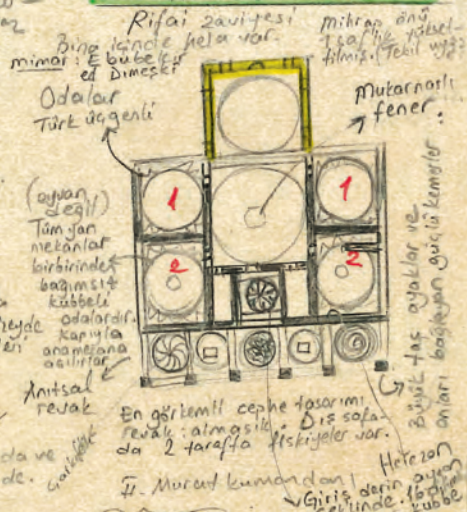 Rifai zaviyesi
Bina içinde hela var.
mimar: Ebubekir
ed Dımeşki
Odalar
Türk üçgenli
mihrap önü
1 saflık yüksel-
tilmiş. (Tekil uyg.)
Mukarnaslı
fener
(eyvan
değil)
Tüm yan
mekânlar
birbirinden
bağımsız
kubbeli
odalardır.
kapıyla
anamekana
açılırlar
1
1
2
2
Anıtsal
revak
Büyük taş ayaklar ve
onları bağlayan güçlü kemerler
En görkemli cephe tasarımı
revak: almaşık. Dış sofa-
da 2 tarafta fıskiyeler var.
II. Murat kumandanı
Giriş derin eyvan
şeklinde.
kubbe
da ve
de.